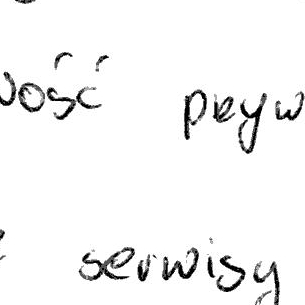 wość pryw
serwisy